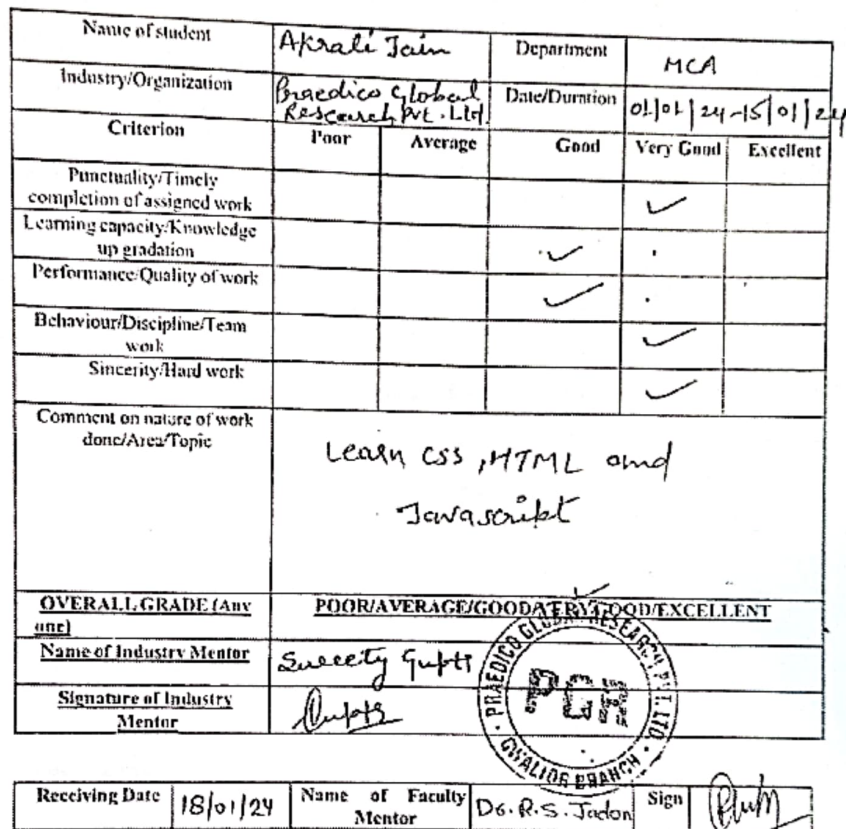 Name of student Akrali Jain Department MCA
Industry/Organization Praedico Global Research Pvt. Ltd. Date/Duration 01/01/24-15/01/24
Criterion Poor Average Good Very Good Excellent
Punctuality/Timely
completion of assigned work ✓
Learning capacity/Knowledge
up gradation ✓
Performance/Quality of work ✓
Behaviour/Discipline/Team
work ✓
Sincerity/Hard work ✓
Comment on nature of work
done/Area/Topic
Learn CSS, HTML and
Javascript
OVERALL GRADE (Any
one) POOR/AVERAGE/GOOD/VERY GOOD/EXCELLENT
Name of Industry Mentor Sweety Gupta
Signature of Industry
Mentor Gupta
PRAEDICO GLOBAL RESEARCH PVT. LTD.
PGR
GWALIOR BRANCH
Receiving Date 18/01/24 Name of Faculty
Mentor Dr. R.S. Jadon Sign